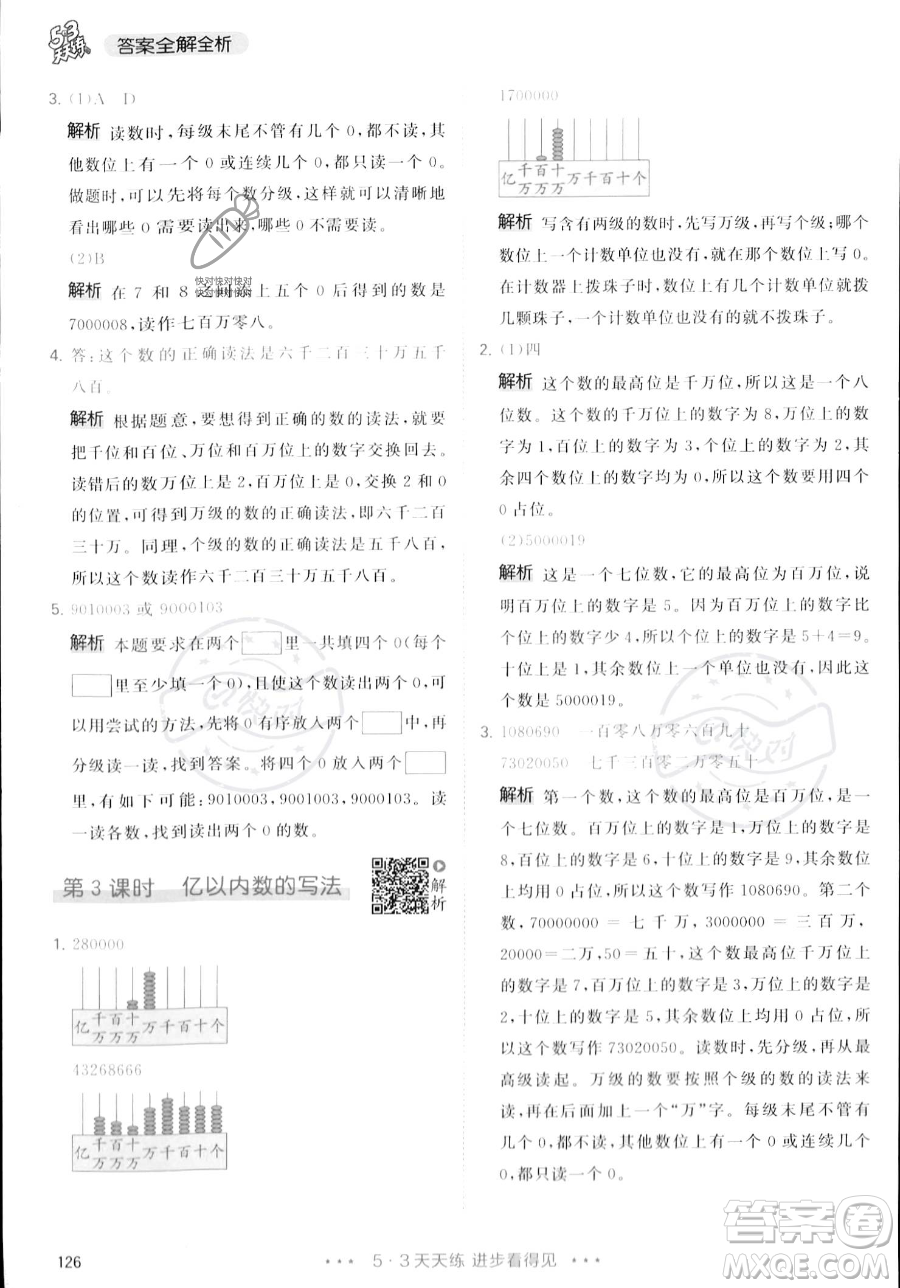 5·3
天天练
答案全解全析
3. (1)A D
解析 读数时,每级末尾不管有几个0,都不读,其
他数位上有一个0或连续几个0,都只读一个0。
做题时,可以先将每个数分级,这样就可以清晰地
看出哪些0需要读出来,哪些0不需要读。
(2)B
解析 在7和8之间添上五个0后得到的数是
7000008,读作七百万零八。
快对快对快对
快对快对快对
4. 答:这个数的正确读法是六千二百三十万五千
八百。
解析 根据题意,要得到正确的数的读法,就要
把千位和百位、万位和百万位上的数字交换回去。
读错后的数万位上是2,百万位上是0,交换2和0
的位置,可得到万级的数的正确读法,即六千二百
三十万。同理,个级的数的正确读法是五千八百,
所以这个数读作六千二百三十万五千八百。
5. 9010003 或 9000103
解析 本题要求在两个□里一共填四个0(每个
□里至少填一个0),且使这个数读出两个0,可
以用尝试的方法,先将0有序放入两个□中,再
分级读一读,找到答案。将四个0放入两个□
里,有如下可能:9010003,9001003,9000103。读
一读各数,找到读出两个0的数。
第3课时 亿以内数的写法
解析
1. 280000
亿千万百万十万万千百十个
43268666
亿千万百万十万万千百十个
1700000
亿千万百万十万万千百十个
解析 写含有两级的数时,先写万级,再写个级;哪
个数位上一个计数单位也没有,就在那个数位上写0。
在计数器上拨珠子时,数位上的数字是几,就拨
几颗珠子,一个计数单位也没有的不拨珠子。
2. (1)四
解析 这个数的最高位是千万位,所以是一个八
位数。这个数的千万位上的数字为8,万位上的数
字为1,百位上的数字为4,十位上的数字为2,其
余四个数位上的数字均为0,所以这个数要用四个
0占位。
(2)5000019
解析 这是一个七位数,这个数的最高位为百万位,说
明百万位上的数字是5。因为百万位上的数字比个
位上的数字少4,所以个位上的数字为5+4=9。
十位上是1,其余数位上一个计数单位也没有,所以
这个数是5000019。
3. 1080690 一百零八万零六百九十
73020050 七千三百零二万零五十
解析 第一个数,这个数的最高位是百万位,是一
个七位数。百万位上的数字是1,万位上的数字是
8,百位上的数字是6,十位上的数字是9,其余数位
上的数字均为0,所以这个数写作1080690。第二个
数,70000000=七千万,3000000=三百万,
20000=二万,50=五十,这个数最高位千万位上的
数字是7,百万位上的数字是3,万位上的数字是
2,十位上的数字是5,其余数位上的数字均用0占位,所
以这个数写作73020050。读数时,先分级,再从最
高级读起。万级的数要按照个级的数的读法来
读,并在后面加上一个“万”字。每级末尾不管有
几个0,都不读,其他数位有一个0或者连续几
个0,都只读一个0。
126
5·3天天练 进步看得见